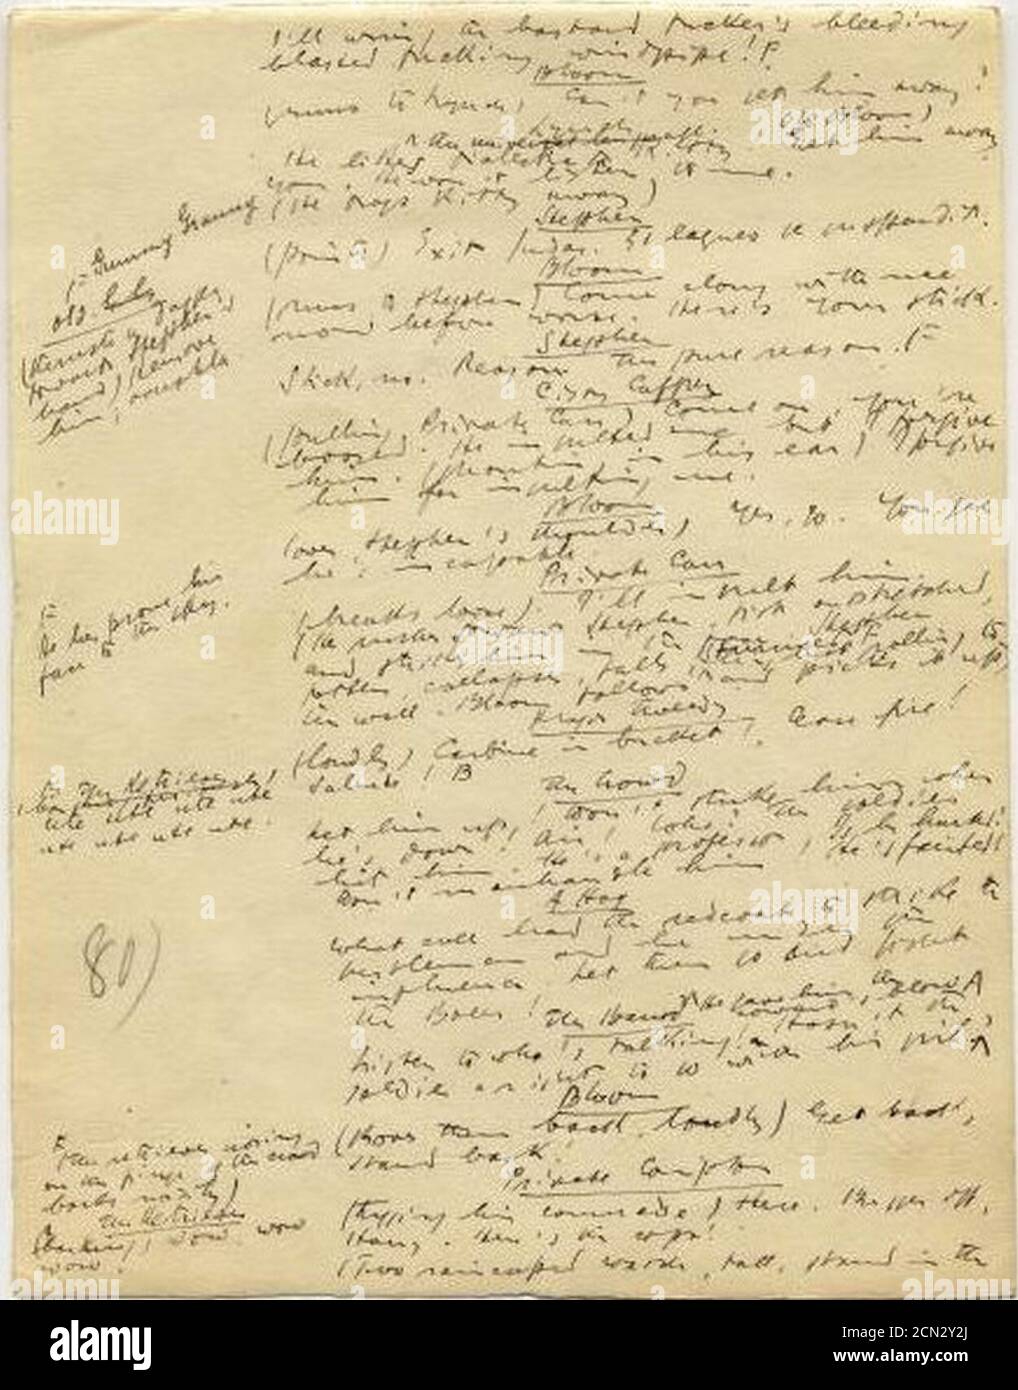 I'll wring the bastard fucker's bleeding
blasted fucking windpipe! F
Bloom
(runs to Lynch) Can't you get him away?
He likes dialectic, the universal language. Kitty! (to Bloom) Get him away
you. He won't listen to me.
(He drags Kitty away)
Stephen
(points) Exit Judas. Et laqueo se suspendit.
Bloom
(runs to Stephen) Come along with me
now before worse. Here's your stick.
Stephen
Stick, no. Reason. This pure reason. F
Cissy Caffrey
(pulling Private Carr) Come on, you're
boosed. He insulted me but I forgive
him. (shouting in his ear) I forgive
him for insulting me.
Bloom
(over Stephen's shoulder) Yes, go. You see
he's incapable.
Private Carr
(breaks loose) I'll insult him.
(He rushes towards Stephen, fist outstretched,
and strikes him in the face. Stephen
totters, collapses, falls, stunned. rolling to
the wall. Bloom follows and picks it up)
Major Tweedy
(loudly) Carbine in bucket! Cease fire!
Salute! B
The Crowd
Let him up! Don't strike him when
he's down! Air! Who? The soldier
hit him. He's a professor. Is he hurted?
Don't manhandle him! He's fainted!
A Hag
What call had the redcoat to strike the
gentleman and he under the
influence. Let them go and fight
the Boers!
The Bawd
Listen to who's talking! Hasn't the
soldier a right to go with his girl?
He gave him the coward's blow. A
Bloom
(shoves them back, loudly) Get back,
stand back.
Private Compton
(tugging his comrade) Here. Bugger off,
Harry. Here's the cops!
(Two raincaped watch, tall, stand in the
F Gummy Granny
old
(thrusts a dagger
towards Stephen's
hand) Remove
him, acushla
F
he lies prone his
face to the sky.
F The Retriever
ute ute ute ute
ute ute ute ute.
80)
F
(the retriever, nosing
on the fringe of the crowd
barks noisily)
The Retriever
(barking) wow wow
wow.
alamy
Image ID: 2CN2Y2J
www.alamy.com